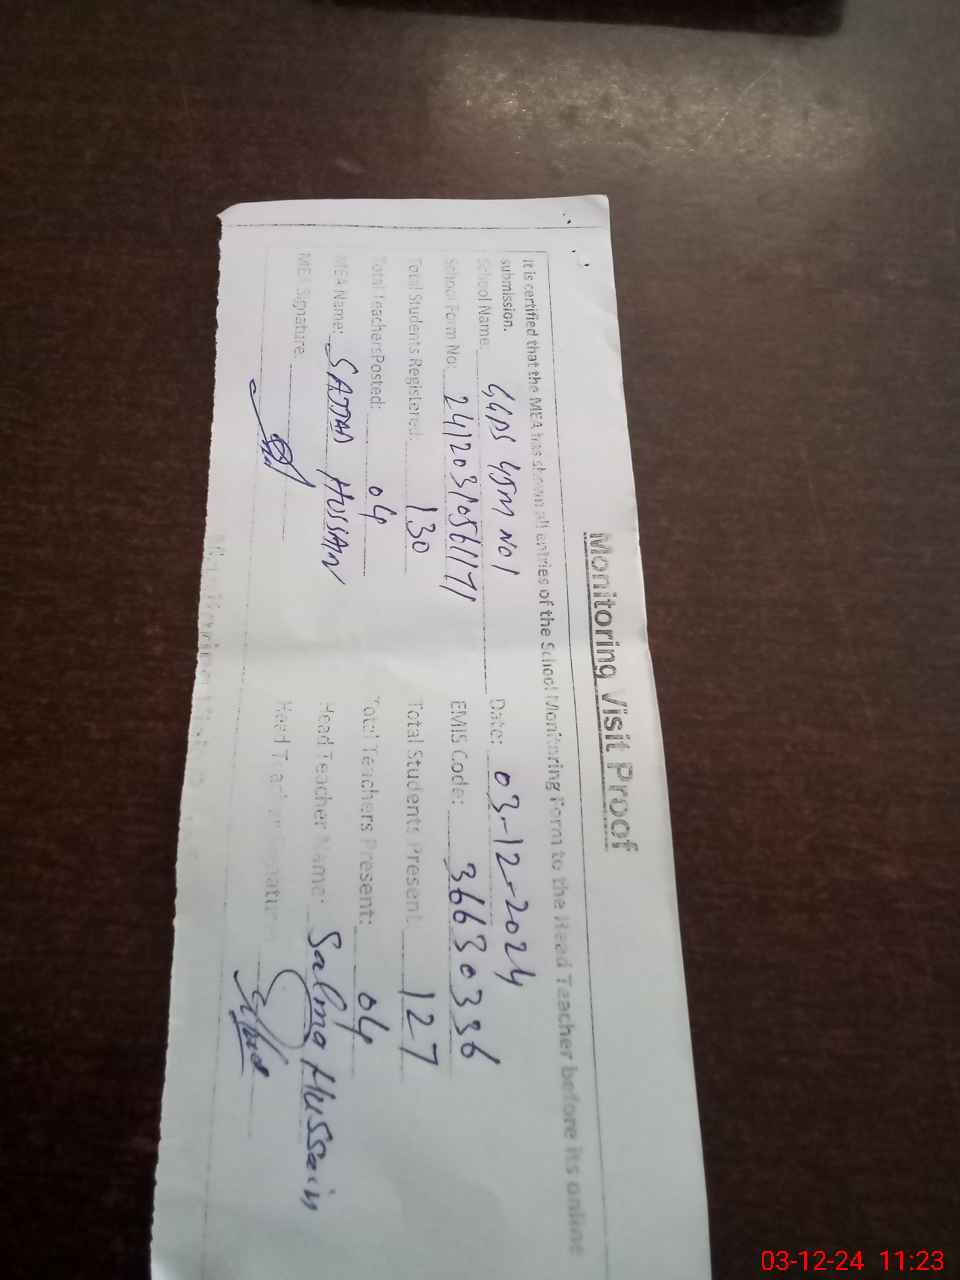 Monitoring Visit Proof
It is certified that the MEA has shown all entries of the School Monitoring Form to the Head Teacher before its online
submission.
School Name: GGPS 45M NO1 Date: 03-12-2024
School Form No: 24120310561171 EMIS Code: 36630336
Total Students Registered: 130 Total Students Present: 127
Total Teachers Posted: 04 Total Teachers Present: 04
MEA Name: SAJJAD HUSSAIN Head Teacher Name: Salma Hussain
MEA Signature: Head Teacher Signature:
03-12-24 11:23